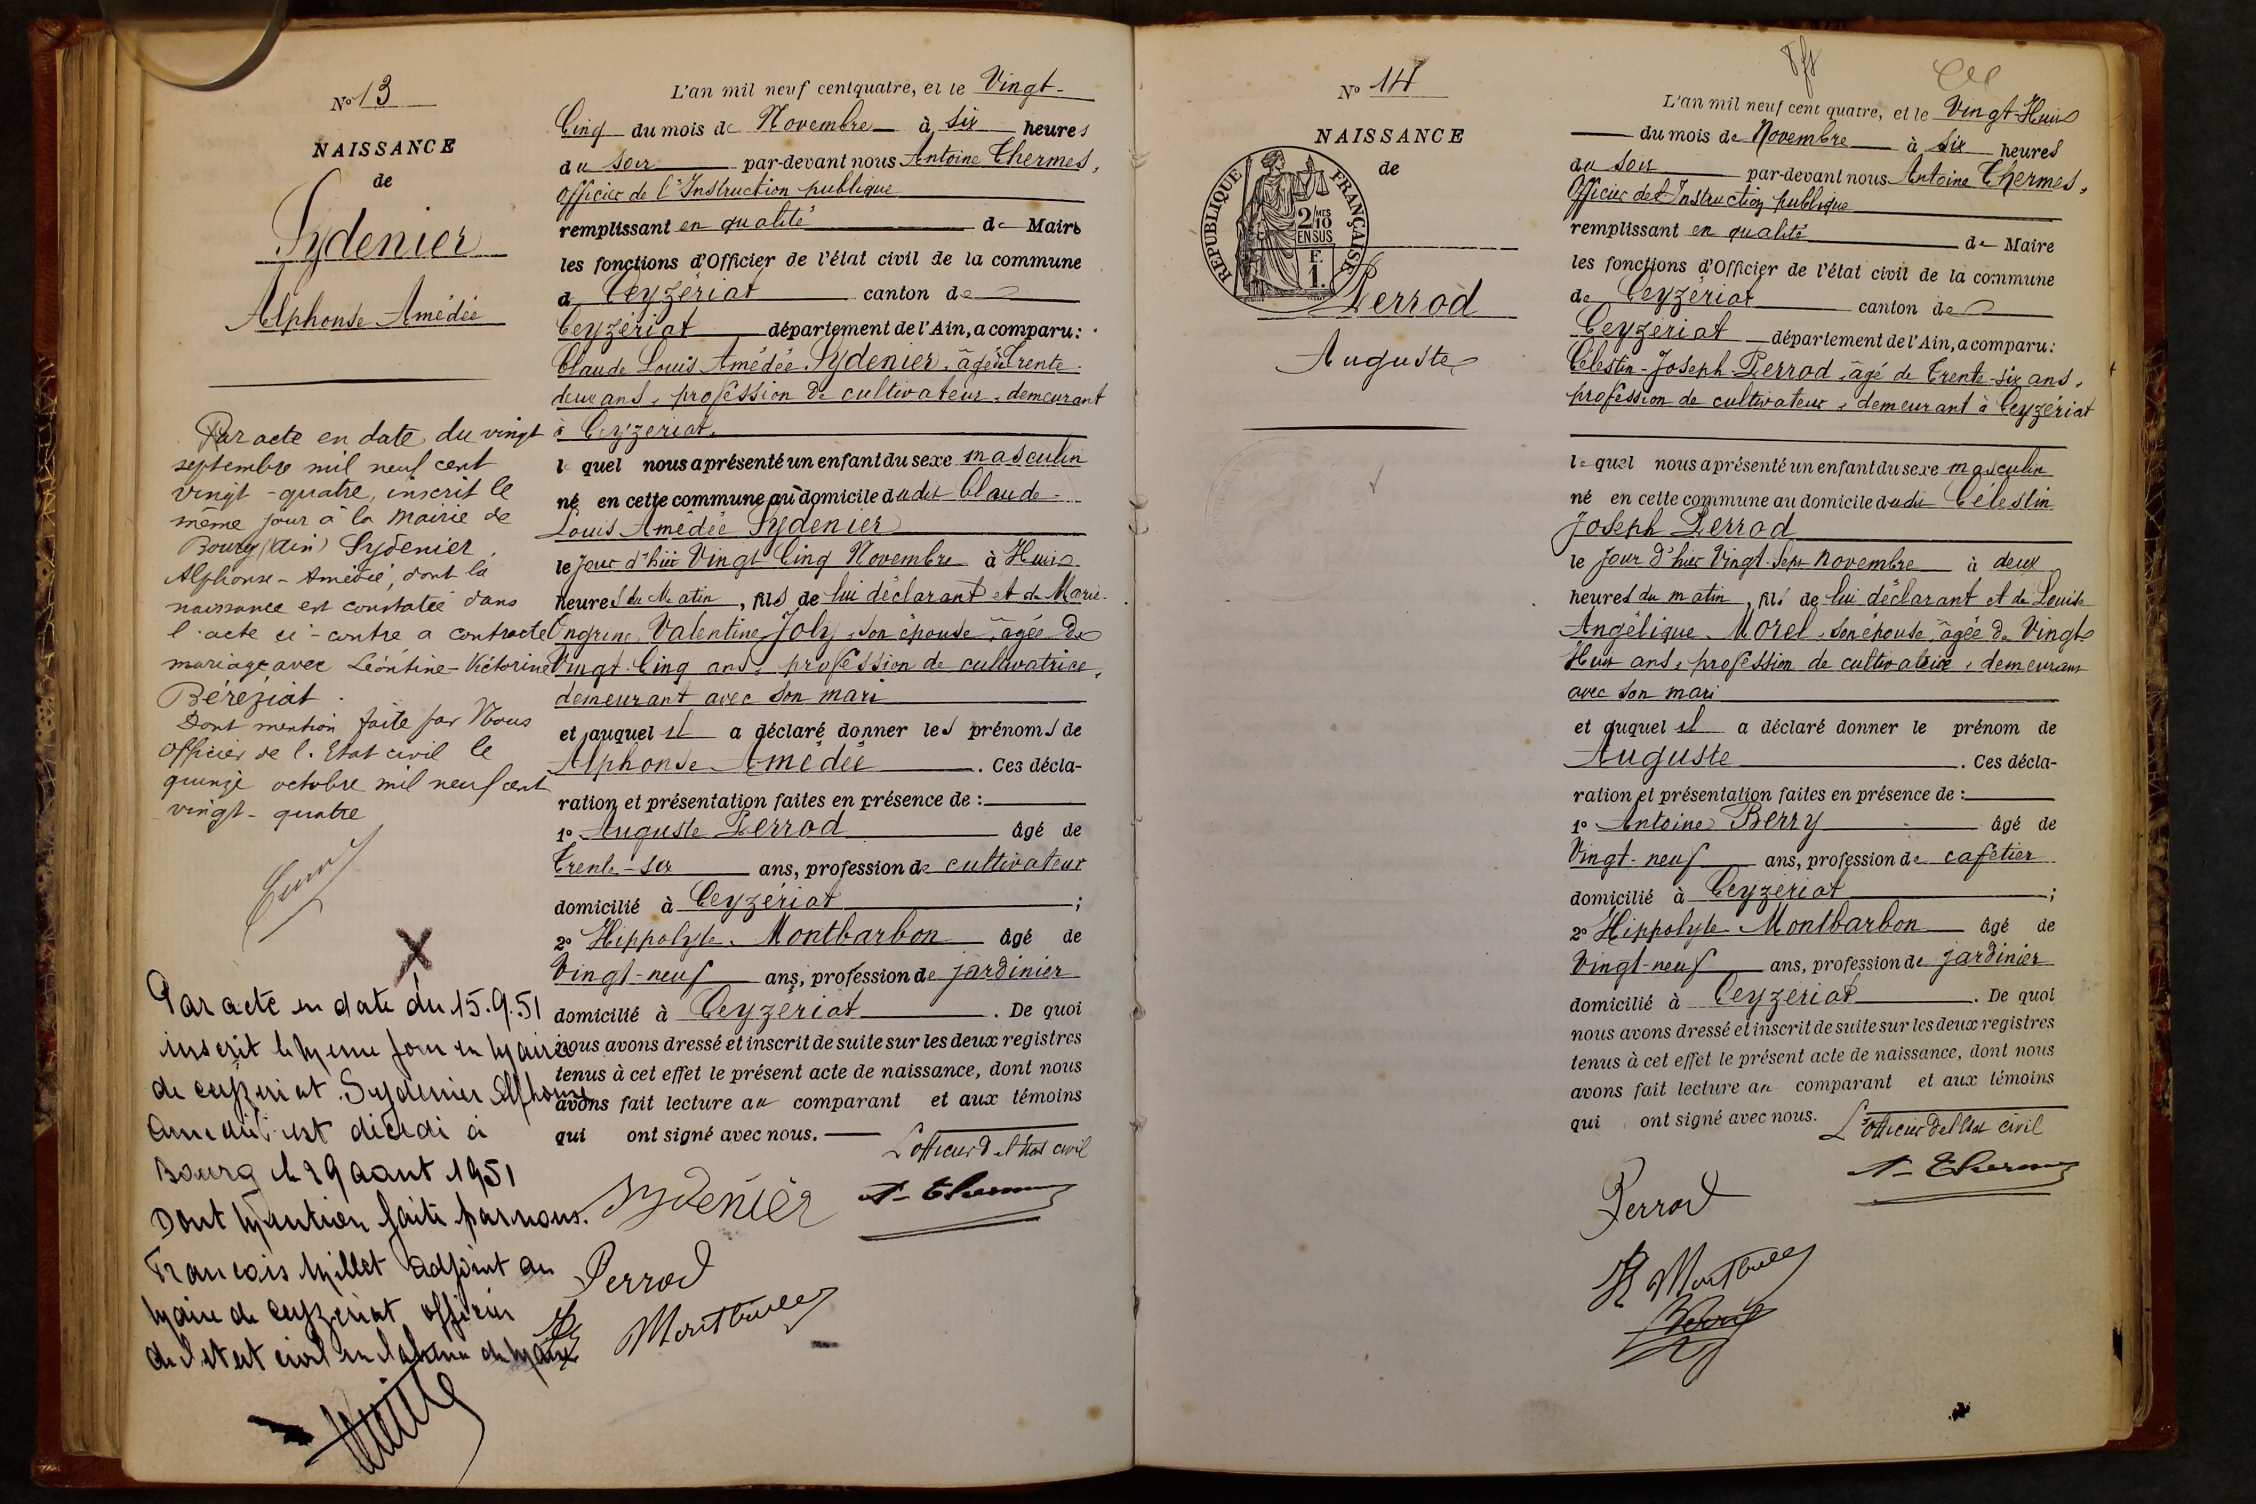 No 13
NAISSANCE
de
Sydenier
Alphonse Amédée
Par acte en date du vingt
septembre mil neuf cent
vingt-quatre, inscrit le
même jour à la Mairie de
Bourg (Ain) Sydenier
Alphonse-Amédée, dont la
naissance est constatée dans
l'acte ci-contre a contracté
mariage avec Léontine-Victorine
Béréziat.
Dont mention faite par Nous
Officier de l'Etat civil le
quinze octobre mil neuf cent
vingt-quatre
Par acte en date du 15.9.51
inscrit le même jour en mairie
de ceyzeriat. Sydenier Alphonse
Amédée est décédé à
Bourg le 29 aout 1951
Dont mention faite par nous.
Francois Millet adjoint au
maire de ceyzeriat officier
de l'etat civil en l'absence du maire
L'an mil neuf cent quatre, et le Vingt-
Cinq du mois de Novembre à Six heures
du soir par-devant nous Antoine Thermes,
Officier de l'Instruction publique
remplissant en qualité de Maire
les fonctions d'Officier de l'état civil de la commune
d Ceyzériat canton de
Ceyzériat département de l'Ain, a comparu :
Claude Louis Amédée Sydenier, âgé de Trente-
deux ans, profession de cultivateur, demeurant
à Ceyzériat.
lequel nous a présenté un enfant du sexe masculin
né en cette commune au domicile dudit Claude
Louis Amédée Sydenier
le jour d'hui Vingt Cinq Novembre à Huit
heures du Matin, fils de lui déclarant et de Marie-
Ongrine Valentine Joly, son épouse, âgée de
Vingt-Cinq ans, profession de cultivatrice,
demeurant avec son mari
et auquel il a déclaré donner les prénoms de
Alphonse Amédée. Ces décla-
ration et présentation faites en présence de :
1º Auguste Perrod âgé de
Trente-six ans, profession de cultivateur
domicilié à Ceyzériat ;
2º Hippolyte Montbarbon âgé de
Vingt-neuf ans, profession de jardinier
domicilié à Ceyzériat. De quoi
nous avons dressé et inscrit de suite sur les deux registres
tenus à cet effet le présent acte de naissance, dont nous
avons fait lecture au comparant et aux témoins
qui ont signé avec nous.
L'officier de l'état civil
Sydenier
A. Thermes
Perrod
H Montbarbon
No 14
NAISSANCE
de
REPUBLIQUE FRANÇAISE
2/10 MES
EN SUS
F.
1.
Perrod
Auguste
L'an mil neuf cent quatre, et le Vingt-Huit
du mois de Novembre à Six heures
du soir par-devant nous Antoine Thermes,
Officier de l'Instruction publique
remplissant en qualité de Maire
les fonctions d'Officier de l'état civil de la commune
de Ceyzériat canton de
Ceyzériat département de l'Ain, a comparu :
Célestin-Joseph Perrod, âgé de Trente-six ans,
profession de cultivateur, demeurant à Ceyzériat
lequel nous a présenté un enfant du sexe masculin
né en cette commune au domicile dudit Célestin
Joseph Perrod
le jour d'hier Vingt-Sept novembre à deux
heures du matin, fils de lui déclarant et de Louise
Angélique Morel, son épouse, âgée de Vingt-
Huit ans, profession de cultivatrice, demeurant
avec son mari
et auquel il a déclaré donner le prénom de
Auguste. Ces décla-
ration et présentation faites en présence de :
1º Antoine Berry âgé de
Vingt-neuf ans, profession de cafetier
domicilié à Ceyzériat ;
2º Hippolyte Montbarbon âgé de
Vingt-neuf ans, profession de jardinier
domicilié à Ceyzériat. De quoi
nous avons dressé et inscrit de suite sur les deux registres
tenus à cet effet le présent acte de naissance, dont nous
avons fait lecture au comparant et aux témoins
qui ont signé avec nous.
L'officier de l'état civil
A. Thermes
Perrod
H Montbarbon
Berry